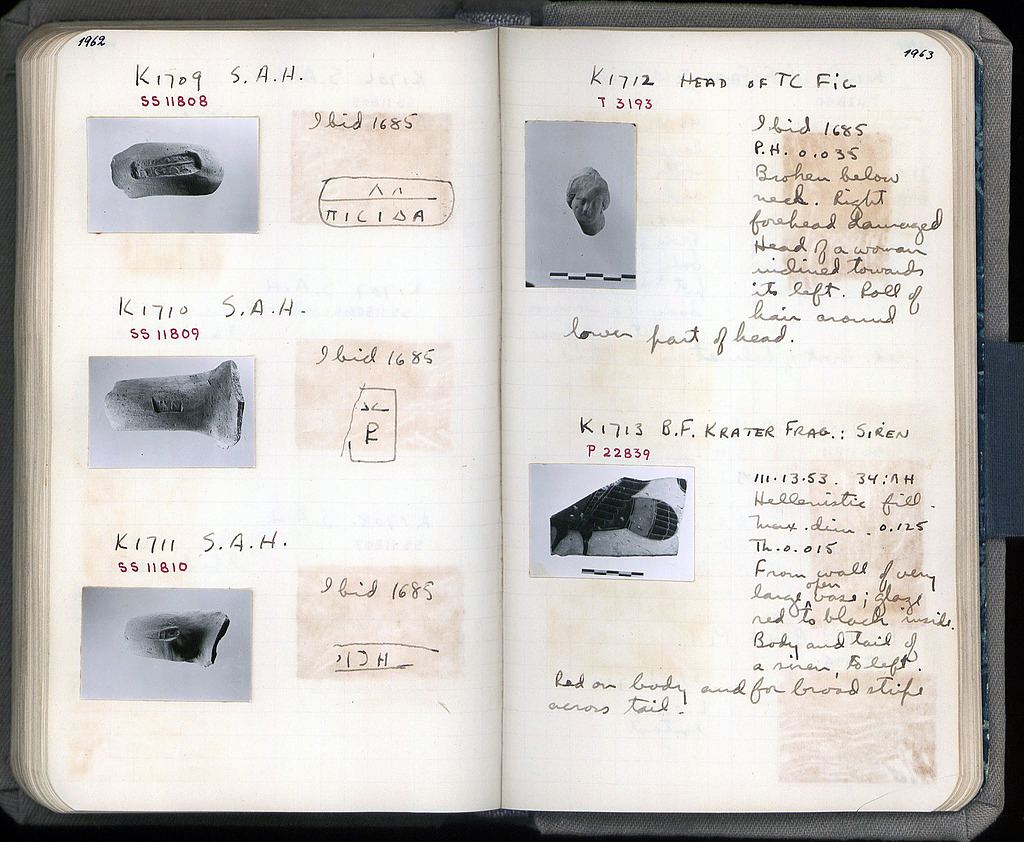 1962
K1709 S.A.H.
SS 11808
Ibid 1685
ΛΛ
ΠICIΔA
K1710 S.A.H.
SS 11809
Ibid 1685
K1711 S.A.H.
SS 11810
Ibid 1685
1963
K1712 HEAD OF TC FIG
T 3193
Ibid 1685
P.H. 0.035
Broken below
neck. Right
forehead damaged
Head of a woman
inclined towards
its left. Roll of
hair around
lower part of head.
K1713 B.F. KRATER FRAG.: SIREN
P 22839
111.13.53. 34:ΛH
Hellenistic fill.
Max. dim. 0.125
Th. 0.015
From wall of very
large open vase; glaze
red to black inside.
Body and tail of
a siren, to left.
Red on body and for broad stripe
across tail.